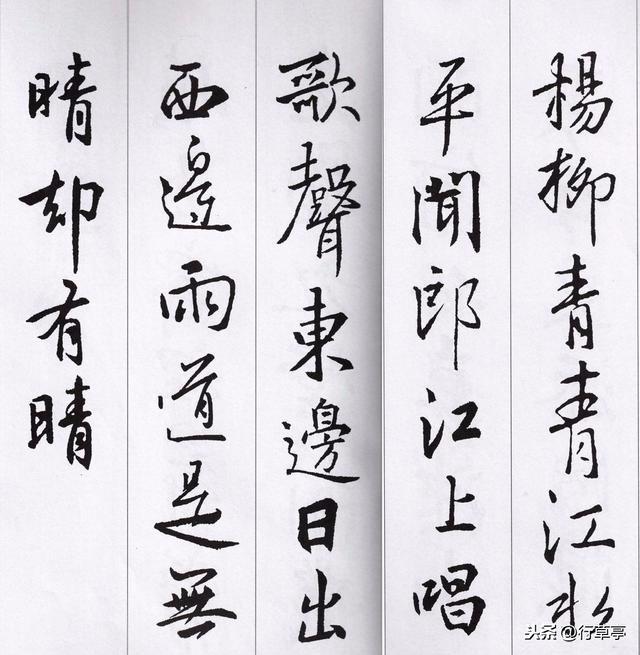 楊柳青青江水
平聞郎江上唱
歌聲東邊日出
西邊雨道是無
晴却有晴
头条@行草亭